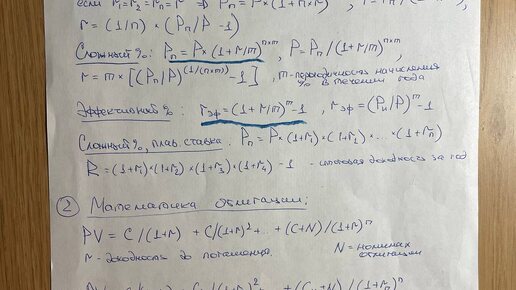 если r₁=r₂=rₙ=r ⇒ Pₙ = P×(1+n×r)
r = (1/n) × (Pₙ/P -1)
Сложный %: Pₙ = P×(1+r/m)ⁿˣᵐ, P = Pₙ/(1+r/m)ⁿˣᵐ
r = m × [(Pₙ/P)^(1/(n×m)) -1], m-периодичность начисления
% в течении года
Эффективный %: rэф = (1+r/m)ᵐ-1, rэф = (Pₙ/P)ᵐ-1
Сложный %, плав. ставка. Pₙ = P×(1+r₁)×(1+r₂)×...×(1+rₙ)
R = (1+r₁)×(1+r₂)×(1+r₃)×(1+r₄) -1 - итоговая доходность за год
② Математика облигаций:
PV = C/(1+r) + C/(1+r)²+... + (C+N)/(1+r)ⁿ
r - доходность до погашения. N = номинал
облигации